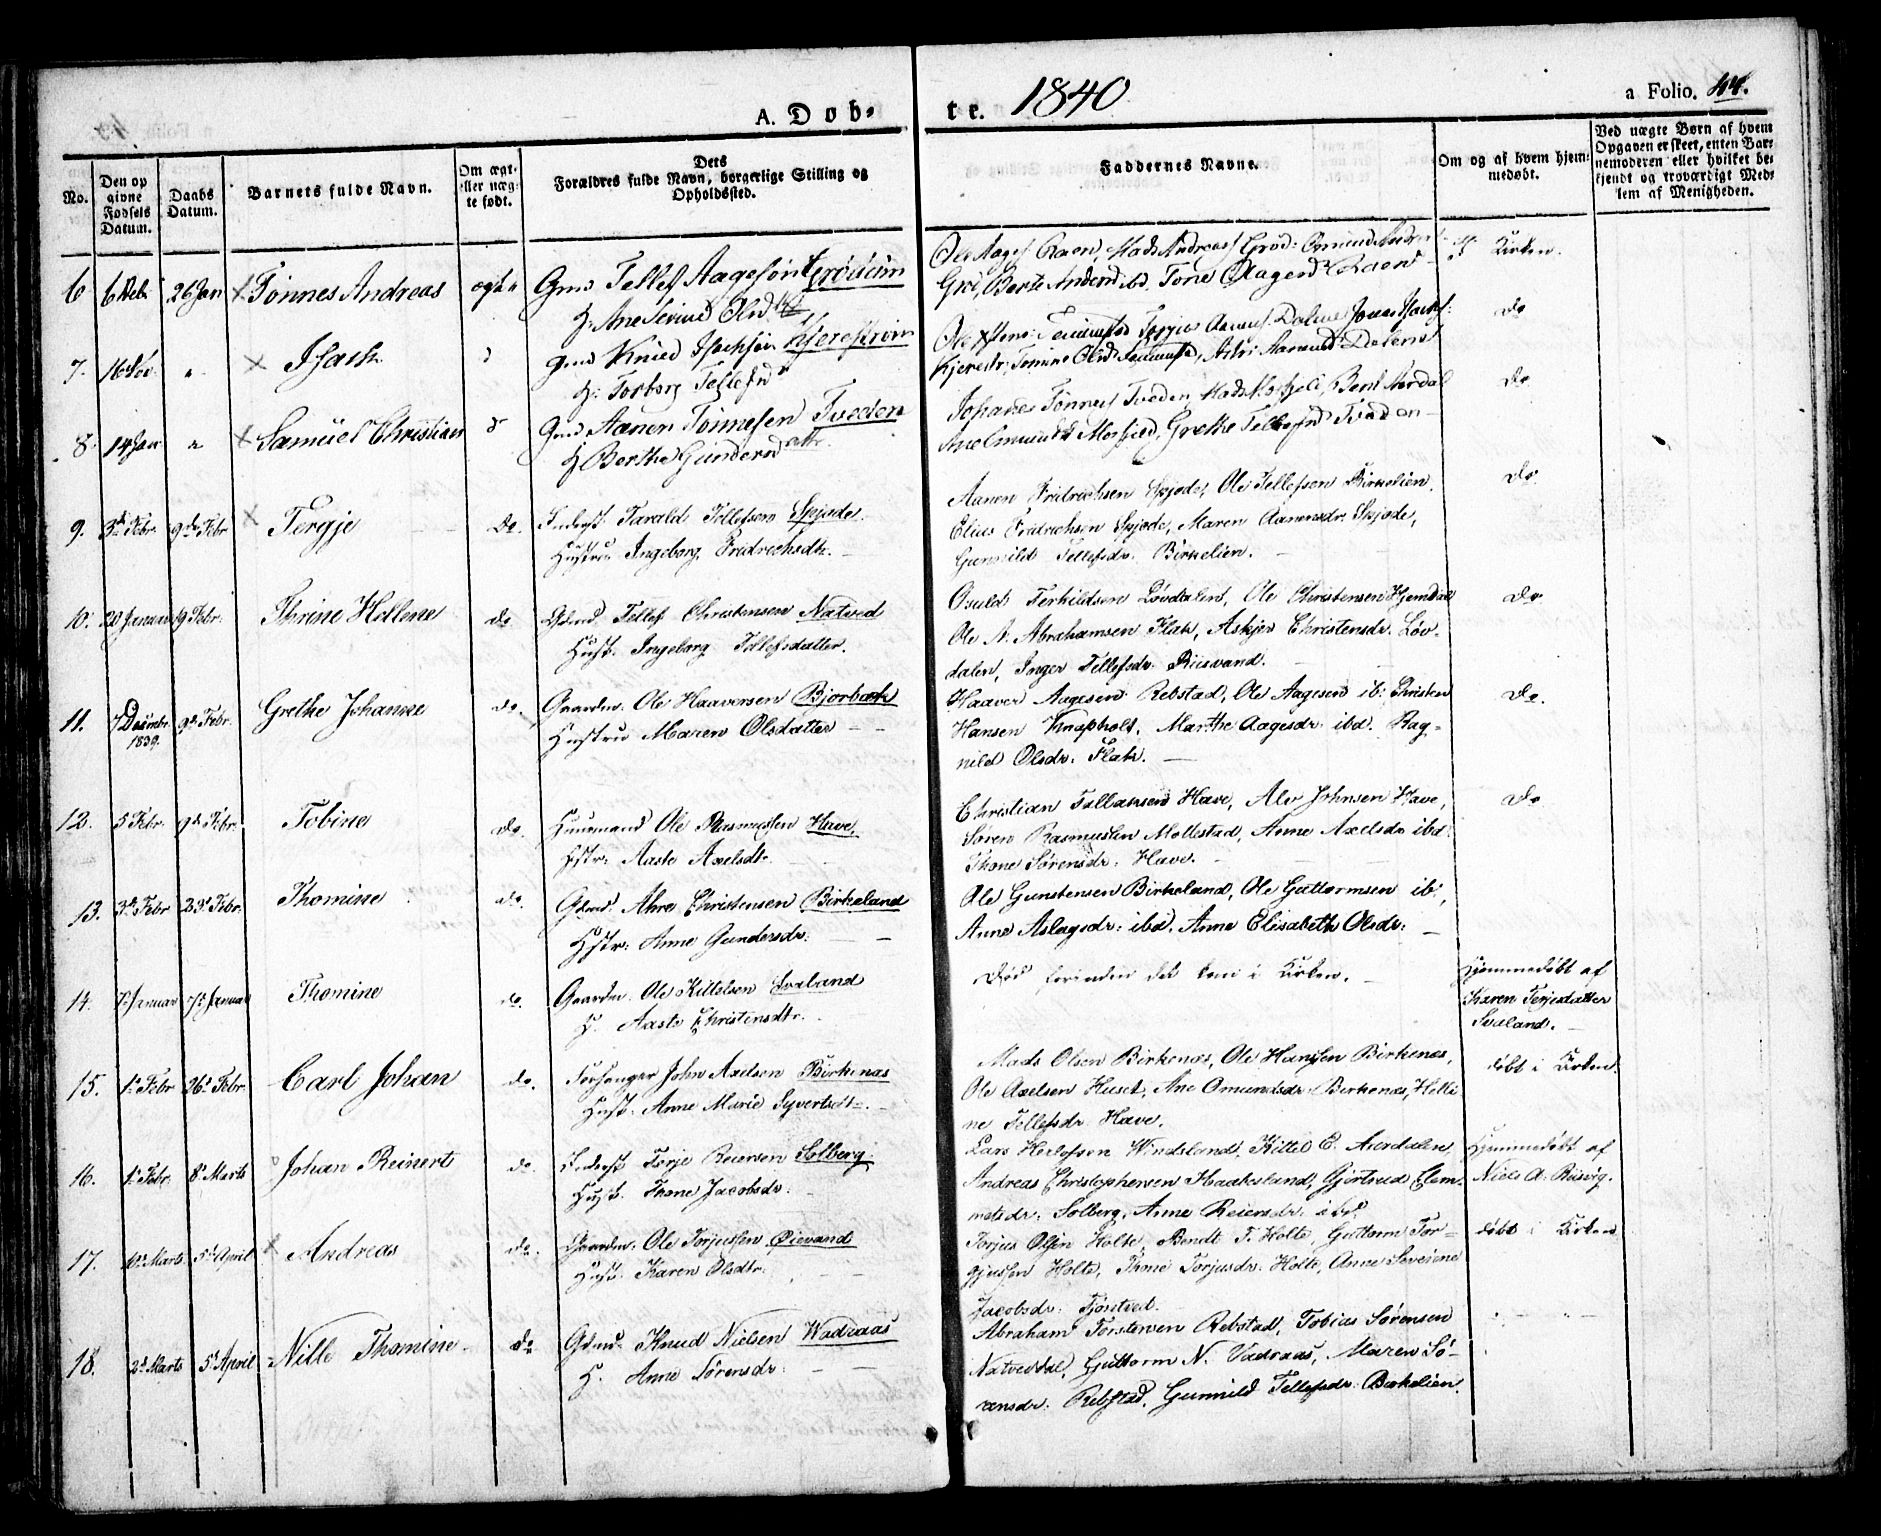 A. Døb- te. 1840
a Folio. 44.
No.
Den opgivne Fødsels Datum.
Daabs Datum.
Barnets fulde Navn.
Om ægte eller uægte født.
Dets Forældres fulde Navn, borgerlige Stilling og Opholdssted.
Faddernes Navne.
Om og af hvem hjemmedøbt.
Ved uægte Børn af hvem Opgaven er skeet, enten Barnemoderen eller hvilket bekjendt og troværdigt Medlem af Menigheden.
6 26 Jan Tønnes Andreas ægte
Gmd Tellef Aagesøn
H: Ane Serine
Kirken.
7. Isach
Gmd Knud Isachsøn Kjerestrøm
H: Torborg Tellefsd
do
8. 14 Jan Samuel Christian
Gmd Aanen Tønnesen Tveden
H Berthe Gundersd
Johanes Tønnes Tveden
Grethe Tellefsd Tveden
do
9. 3de Febr. 9de Febr Tergje Do.
Inderst Tarald Tellefsen Spjode.
Hustru Ingeborg Fridrichsdtr.
Aanen Fridrichsen Spjode, Ole Tellefsen Birkelien.
Elias Fridrichsen Spjode, Maren Aanensdr. Spjode,
Gunnild Tellefsdr. Birkelien.
Do.
10. 20 Januar 9 Febr. Thrine Hellene do
Gdmd. Tellef Christensen Natved
Hust. Ingeborg Tellefsdatter.
Osuld Terkildsen Løvdalen, Ole Christensen
Ole A. Abrahamsen Flak, Askjer Christensdr. Løv-
dalen, Inger Tellefsdr. Risvand.
Do
11. 7 Decembr. 1839. 9de Febr. Grethe Johanne do.
Gaardm. Ole Haaversen Bjorbæk
Hustru Maren Olsdatter
Haaver Aagesen Rebstad, Ole Aagesen ib: Christen
Hansen Knapholt, Marthe Aagesdr. ibd. Rag-
nild Olsdr. Flak.
Do.
12. 5 Febr. 9de Febr. Tobine do.
Huusmand Ole Rasmussen Have.
Hstr: Aaste Axelsdtr.
Christian Tellaksen Have, Alv Johnsen Have,
Søren Rasmussen Mollestad, Anne Axelsdr ibd.
Thone Sørensdr. Have.
do
13. 3de Febr 23de Febr. Thomine do.
Gdmd. Ahre Christensen Birkeland
Hstr: Anne Gundersdr.
Ole Gunstensen Birkeland, Ole Guttormsen ib:,
Anne Aslagsdr: ibd. Anne Elisabeth Olsdr:
14. Januar Januar Thomine do.
Gaardm. Ole Kittelsen Svaland
H. Aaste Christensdtr.
Død forinden det kom i Kirken.
Hjemmedøbt af
Karen Terjesdatter
Svaland.
15. 1de Febr 26de Febr. Carl Johan do.
Forsanger John Axelsen Birkenæs
Hust. Anne Marie Syvertsdtr.
Mads Olsen Birkenæs, Ole Hanssen Birkenæs,
Ole Axelsen Huset, Ane Omundsdr. Birkenæs, Helle-
ne Tellefsdr Have.
døbt i Kirken.
16. 1de Febr. 8de Marts Johan Reinert do.
Inderst Terje Reiersen Solberg.
Hust. Thone Jacobsdr.
Lars Herlofsen Windsland, Kittel E. Aurdalen,
Andreas Christophersen Haakesland, Gjertrud Clem-
metsdr. Solberg, Anne Reiersdr. ibd.
Hjemmedøbt af
Niels A. Risvig.
17. Marts 5te April Andreas do.
Gaardm. Ole Torjussen Øievand
Hust. Karen Olsdtr.
Torjus Olsen Holte, Bendt T. Holte, Guttorm Tor-
gjussen Holte, Thone Torjusdr. Holte, Anne Severine
Jacobsdr. Tjøntved.
døbt i Kirken
18. 2de Marts 5te April Nille Thomine do
Gdmd. Knud Nielsen Wadraas
H. Anne Sørensdr.
Abraham Torstensen Rebstad, Tobias Sørensen
Natvedtal, Guttorm N. Vadraas, Maren Sø-
rensdr. Rebstad, Gunnild Tellefsdr. Birkelien.